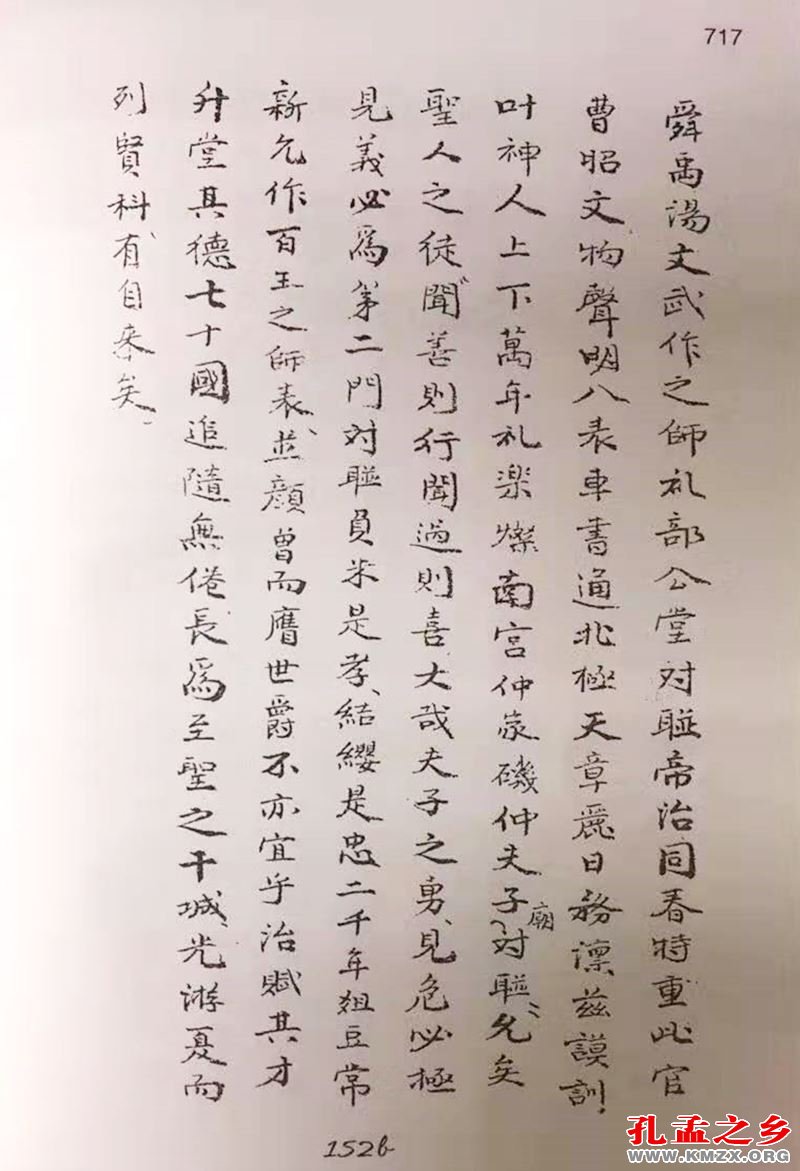 717
舜禹湯文武作之師礼部公堂对聮帝治同春特重此官
曹昭文物聲明八表車書通北極天章麗日務凛兹謨訓
叶神人上下萬年礼楽燦南宫仲家磯仲夫子廟对聮允矣
聖人之徒聞善則行聞過則喜大哉夫子之勇見危必極
見義必爲第二門对聮負米是孝結纓是忠二千年俎豆常
新允作百王之師表並顔曾而膺世爵不亦宜乎治賦其才
升堂其德七十國追隨無倦長爲至聖之干城光游夏而
列賢科有自来矣
152b
孔孟之乡
WWW.KMZX.ORG